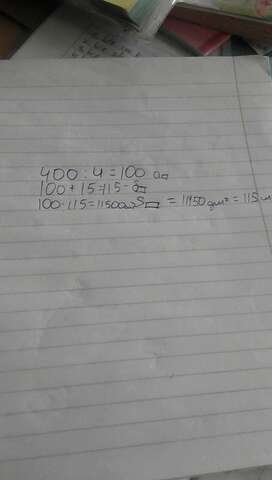 400 : 4 = 100 a▭
100 + 15 = 115 - a▭
100 · 115 = 11500 S▭ = 11150 дм² = 115 м